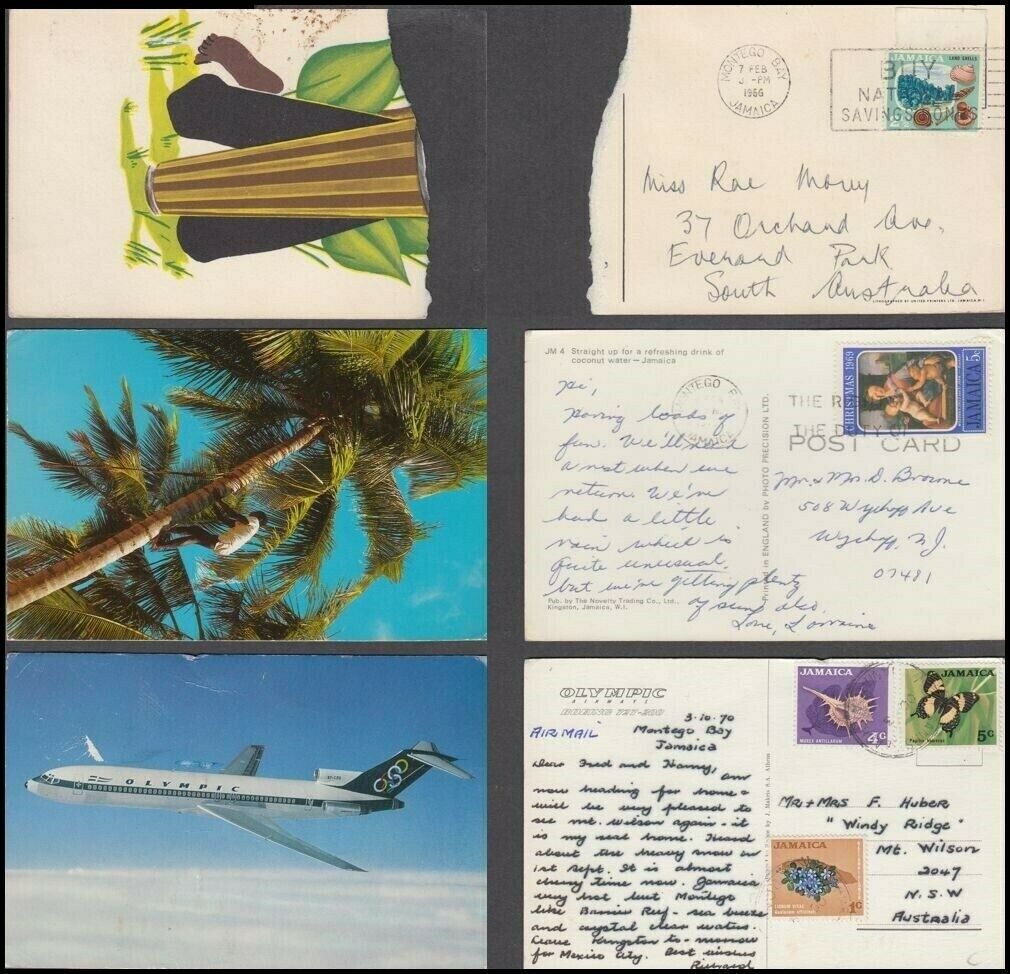 MONTEGO BAY
7 FEB
-PM
1966
JAMAICA
BUY
SAVINGS BONDS
JAMAICA LAND SHELLS
Miss Rae Morey
37 Orchard Ave.
Everard Park
South Australia
LITHOGRAPHED BY UNITED PRINTERS LTD. JAMAICA, W.I.
JM 4 Straight up for a refreshing drink of
coconut water—Jamaica
Hi,
Having loads of
fun. We'll need
a rest when we
return. We've
had a little
rain which is
quite unusual,
but we're getting plenty
of sun also.
Love, Lorraine
Pub. by The Novelty Trading Co., Ltd.,
Kingston, Jamaica, W.I.
Printed in ENGLAND by PHOTO PRECISION LTD.
MONTEGO
JAMAICA
THE
THE DUTY OF
POST CARD
CHRISTMAS 1969
JAMAICA 5c
Mr. & Mrs. D. Browne
508 Wyckoff Ave
Wyckoff, N.J.
07481
OLYMPIC
OLYMPIC
AIRWAYS
BOEING 727-200
AIR MAIL
3.10.70
Montego Bay
Jamaica
Dear Fred and Nancy, am
now heading for home &
will be very pleased to
see Mt. Wilson again - it
is my real home. Heard
about the heavy snow on
1st Sept. It is almost
cherry time now. Jamaica
very hot but Montego
like Barrier Reef - sea breeze
and crystal clear waters.
Leave Kingston to-morrow
for Mexico City. Best wishes
Richard
by J. Makris S.A. Athens
JAMAICA
4c
MUREX ANTILLARUM
JAMAICA
5c
JAMAICA
LIGNUM VITAE
1c
Mr + Mrs F. Huber
"Windy Ridge"
Mt. Wilson
2047
N.S.W
Australia